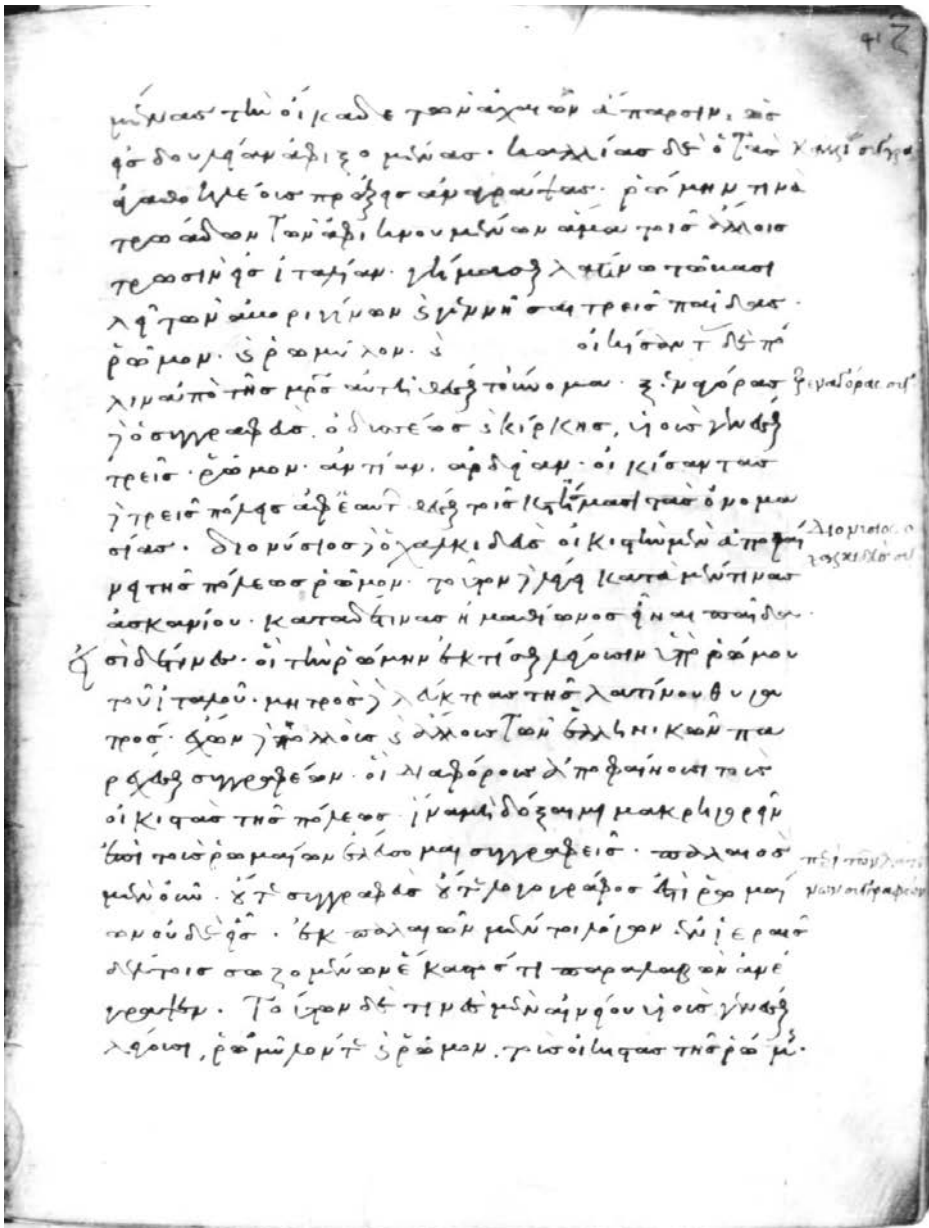 μένας τὴν οἴκαδε τῶν ἀχαιῶν ἄπαρσιν, ὡς
εἰς δουλείαν ἀφιξομένας. καλλίας δὲ ὁ τὰς
ἀγαθοκλέους πράξεις ἀναγράψας. ῥώμην τινὰ
τρωάδων τῶν ἀφικνουμένων ἅμα τοῖς ἄλλοις
τρωσὶν εἰς ἰταλίαν. γήμασθαι λατίνω τῶ βασι
λεῖ τῶν ἀβοριγίνων καὶ γεννῆσαι τρεῖς παῖδας.
ῥῶμον. καὶ ῥωμύλον. καὶ οἰκίσαντας δὲ πό
λιν ἀπὸ τῆς μητρὸς αὐτῆ θέσθαι τοὔνομα. ξεναγόρας
δὲ ὁ συγγραφεὺς, ὀδυσσέως καὶ κίρκης, υἱοὺς γενέσθαι
τρεῖς. ῥῶμον. ἀντίαν. ἀρδείαν. οἰκίσαντας
δὲ τρεῖς πόλεις ἀφ' ἑαυτῶν θέσθαι τοῖς κτίσμασι τὰς ὀνομα
σίας. διονύσιος δὲ ὁ χαλκιδεὺς οἰκιστὴν μὲν ἀποφαί
νει τῆς πόλεως ῥῶμον. τοῦτον δὲ λέγει κατὰ μέν τινας
ἀσκανίου. κατὰ δέ τινας ἠμαθίωνος εἶναι παῖδα.
εἰσὶ δέ τινες. οἳ τὴν ῥώμην ἐκτίσθαι λέγουσιν ὑπὸ ῥώμου
τοῦ ἰταλοῦ. μητρὸς δὲ λεύκτρας τῆς λατίνου θυγα
τρός. ἔχων δὲ πολλοὺς καὶ ἄλλους τῶν ἑλληνικῶν πα
ρέχεσθαι συγγραφέων. οἳ διαφόρους ἀποφαίνουσι τοὺς
οἰκιστὰς τῆς πόλεως. ἵνα μὴ δόξαιμι μακρηγορεῖν
ἐπὶ τοὺς ῥωμαίων ἐλεύσομαι συγγραφεῖς. παλαιὸς
μὲν οὖν. οὔτε συγγραφεὺς οὔτε λογογράφος ἐστὶ ῥωμαί
ων οὐδὲ εἷς. ἐκ παλαιῶν μέντοι λόγων ἐν ἱεραῖς
δέλτοις σωζομένων ἕκαστός τι παραλαβὼν ἀνέ
γραψεν. τούτων δέ τινες μὲν αἰνείου υἱοὺς γενέσθαι
λέγουσι, ῥωμύλον τε καὶ ῥῶμον. τοὺς οἰκιστὰς τῆς ῥώμης.
ξεναγόρας συγ
διονύσιος ὁ
χαλκιδεὺς συγ
περὶ τῶν λατί
νων συγγραφέων